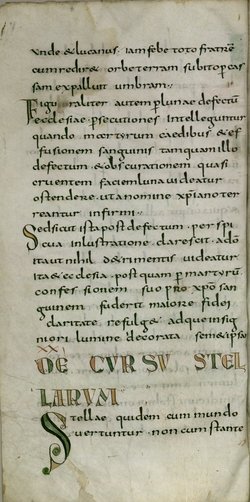 unde & lucanus · iam febe toto fratrem
cum redir& orbe terram subito per cas
sam expalluit umbram
Figuraliter autem p lunae defectu
ecclesiae psecutiones intelleguntur
quando martyrum caedibus & ef
fusionem sanguinis tamquam illo
defectum & obscurationem quasi
cruentem faciem luna uideatur
ostendere ut a nomine xpiano ter
reantur infirmi
Sed sicut ista post defectum · per spi
cua inlustratione clarescit · ado
ita ut nihil d&rimentis uideatur
ita & ecclesia · postquam p martyru
confessionem suo pro xpo san
guinem fuderit maiore fidei
claritate refulg& adque insig
niori lumine decorata sem& ipsa
XXI
DE CURSU STEL
LARUM
Stellae quidem cum mundo
uertuntur · non cum stante